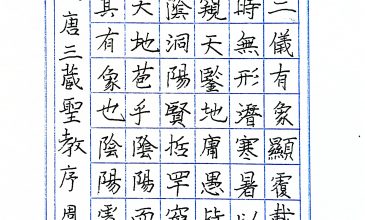 二儀有象顯覆載
時無形潛寒暑以
窺天鑒地庸愚皆
陰洞陽賢哲罕窮
天地苞乎陰陽而
其有象也陰陽處
唐三藏聖教序 周